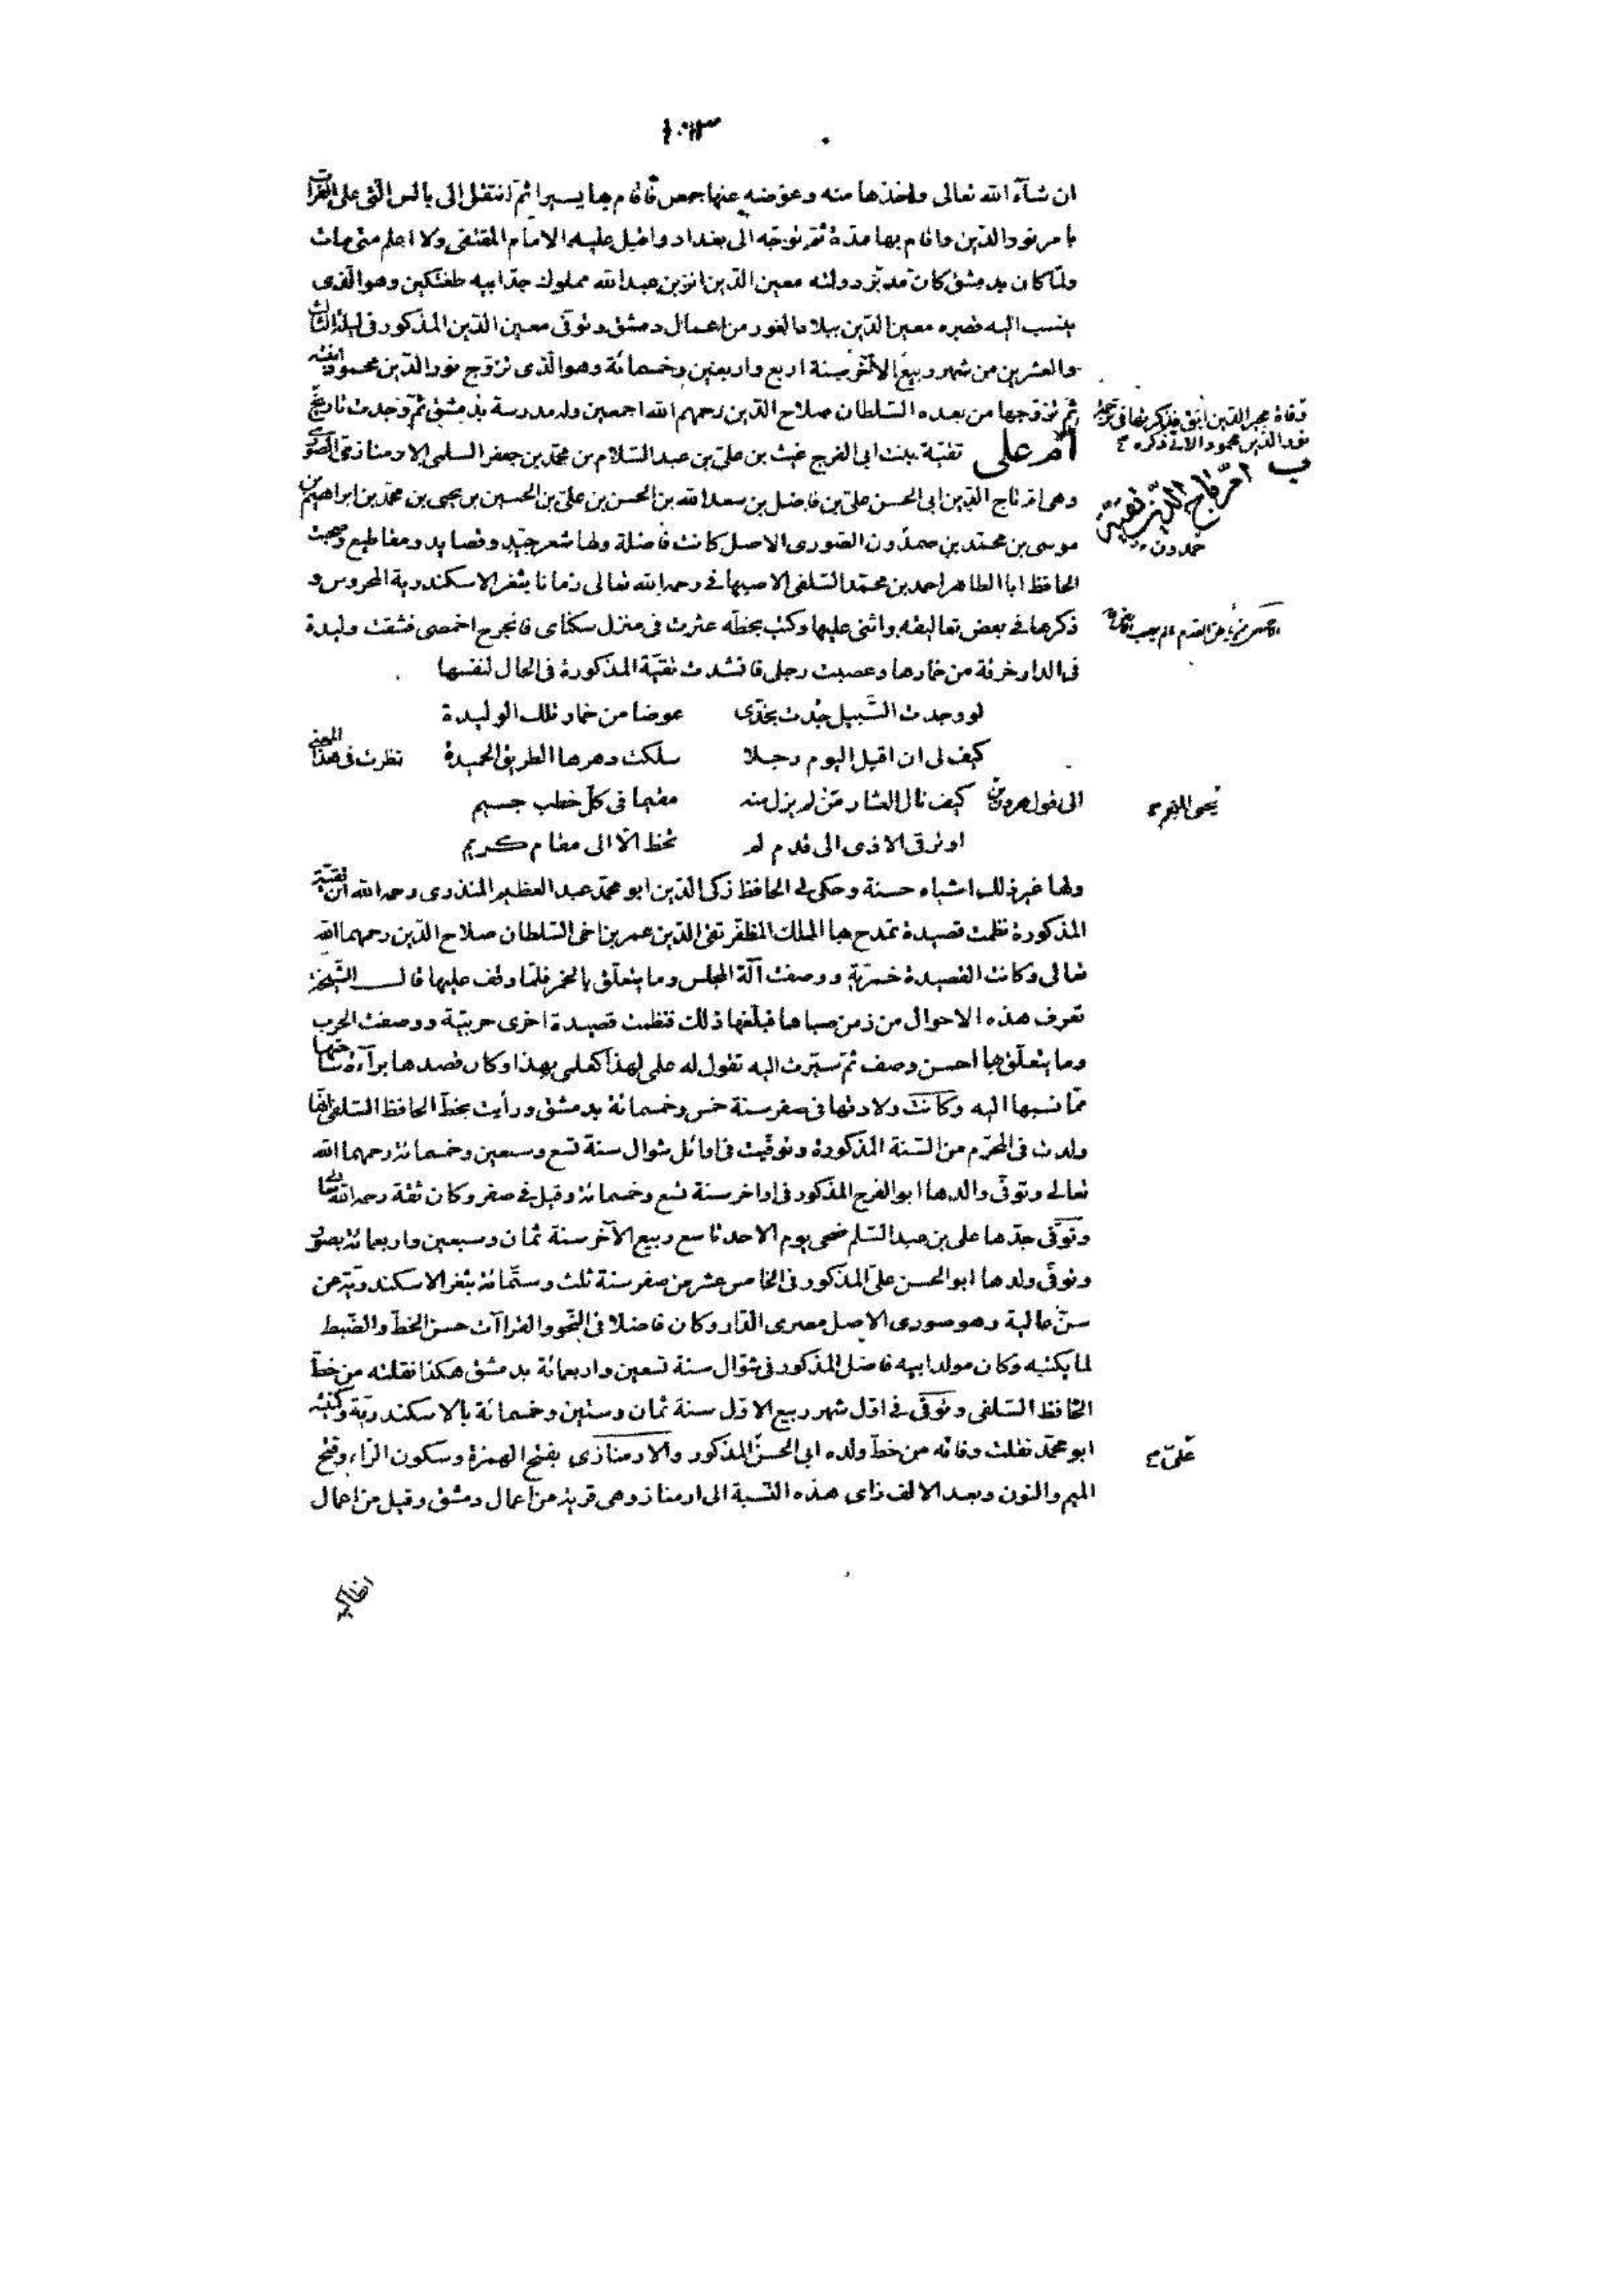 ١٠٣
ان شآء الله تعالى واخذها منه وعوّضه عنها حمص فاقام بها يسيرا ثمّ انتقل الى بالس الّتى على الفرات
بامر نور الدّين واقام بها مدّة ثمّ توجّه الى بغداد واقبل عليه الامام المقتفى ولا اعلم متى مات
ولمّا كان بدمشق كان مدبّر دولته معين الدّين انز بن عبد الله مملوك جدّ ابيه طغتكين وهو الّذى
ينسب اليه قصره معين الدّين ببلاد الغور من اعمال دمشق وتوفّى معين الدّين المذكور فى ليلة الثالث
والعشرين من شهر ربيع الآخر سنة اربع واربعين وخمسمائة وهو الّذى تزوّج نور الدّين محمود ابنته
ثمّ تزوّجها من بعده السّلطان صلاح الدّين رحمهم الله اجمعين وله مدرسة بدمشق ثمّ وجدت تاريخ
وفاة مجير الدّين ابق فذكرتها فى ترجمة
نور الدّين محمود الآتى ذكره
امّ على تقيّة بنت ابى الفرج غيث بن علىّ بن عبد السّلام بن محمّد بن جعفر السلمى الارمنازىّ الصّورى
امّ تاج الدّين تقيّة
وهى امّ تاج الدّين ابى الحسن علىّ بن فاضل بن سعد الله بن الحسن بن علىّ بن الحسين بن يحيى بن محمّد بن ابراهيم بن
موسى بن محمّد بن صمدون الصّورى الاصل كانت فاضلة ولها شعر جيّد وقصايد ومقاطيع وصحبت
حمدون
الحافظ ابا الطاهر احمد بن محمّد السّلفى الاصبهانى رحمه الله تعالى زمانا بثغر الاسكندرية المحروس و
ذكرها فى بعض تعاليقه واثنى عليها وكتب بخطّه عثرت فى منزل سكناى فانجرح اخمصى فشقّت وليدة
فى الدار خرقة من خمارها وعصبت رجلى فانشدت تقيّة المذكورة فى الحال لنفسها
لو وجدت السّبيل جُدت بخدّى عوضا من خمار تلك الوليدة
كيف لى ان اقبل اليوم رجلا سلكت دهرها الطريق الحميدة نظرت فى هذا المعنى
الى قول هرون بن كيف نال العثار من لم يزل منه مقيما فى كلّ خطب جسيم
يحيى المنجم
او ترقى الاذى الى قدم لم تخط الّا الى مقام كريم
ولها غير ذلك اشياء حسنة وحكى لى الحافظ زكى الدّين ابو محمّد عبد العظيم المنذرى رحمه الله ان تقيّة
المذكورة نظمت قصيدة تمدح بها الملك المظفّر تقى الدّين عمر بن اخى السّلطان صلاح الدّين رحمهما الله
تعالى وكانت القصيدة خمريّة ووصفت آلة المجلس وما يتعلّق بالخمر فلمّا وقف عليها قال الشّيخة
تعرف هذه الاحوال من زمن صباها فبلّغها ذلك فنظمت قصيدة اخرى حربيّة ووصفت الحرب
وما يتعلّق بها احسن وصف ثمّ سيّرت اليه تقول له علمى بهذا كعلمى بهذا وكان قصدها برآءة ساحتها
ممّا نسبها اليه وكانت ولادتها فى صفر سنة خمس وخمسمائة بدمشق ورأيت بخطّ الحافظ السّلفى انّها
ولدت فى المحرّم من السّنة المذكورة وتوفّيت فى اوائل شوال سنة تسع وسبعين وخمسمائة رحمهما الله
تعالى وتوفّى والدها ابو الفرج المذكور فى اواخر سنة تسع وخمسمائة وقيل فى صفر وكان ثقة رحمه الله تعالى
وتوفّى جدّها على بن عبد السّلم ضحى يوم الاحد تاسع ربيع الآخر سنة ثمان وسبعين واربعمائة بصور
وتوفّى ولدها ابو الحسن علىّ المذكور فى الخامس عشر من صفر سنة ثلث وستّمائة بثغر الاسكندريّة عن
سنّ عالية وهو صورى الاصل مصرى الدّار وكان فاضلا فى النّحو والقراآت حسن الخطّ والضّبط
لما يكتبه وكان مولد ابيه فاضل المذكور فى شوّال سنة تسعين واربعمائة بدمشق هكذا نقلته من خطّ
الحافظ السّلفى وتوفّى فى اوّل شهر ربيع الاوّل سنة ثمان وستين وخمسمائة بالاسكندريّة وكنيته
ابو محمّد نقلت وفاته من خطّ ولده ابى الحسن المذكور والارمنازى بفتح الهمزة وسكون الرّاء وفتح
علىّ
الميم والنون وبعد الالف زاى هذه النّسبة الى ارمناز وهى قرية من اعمال دمشق وقيل من اعمال
انطاكية